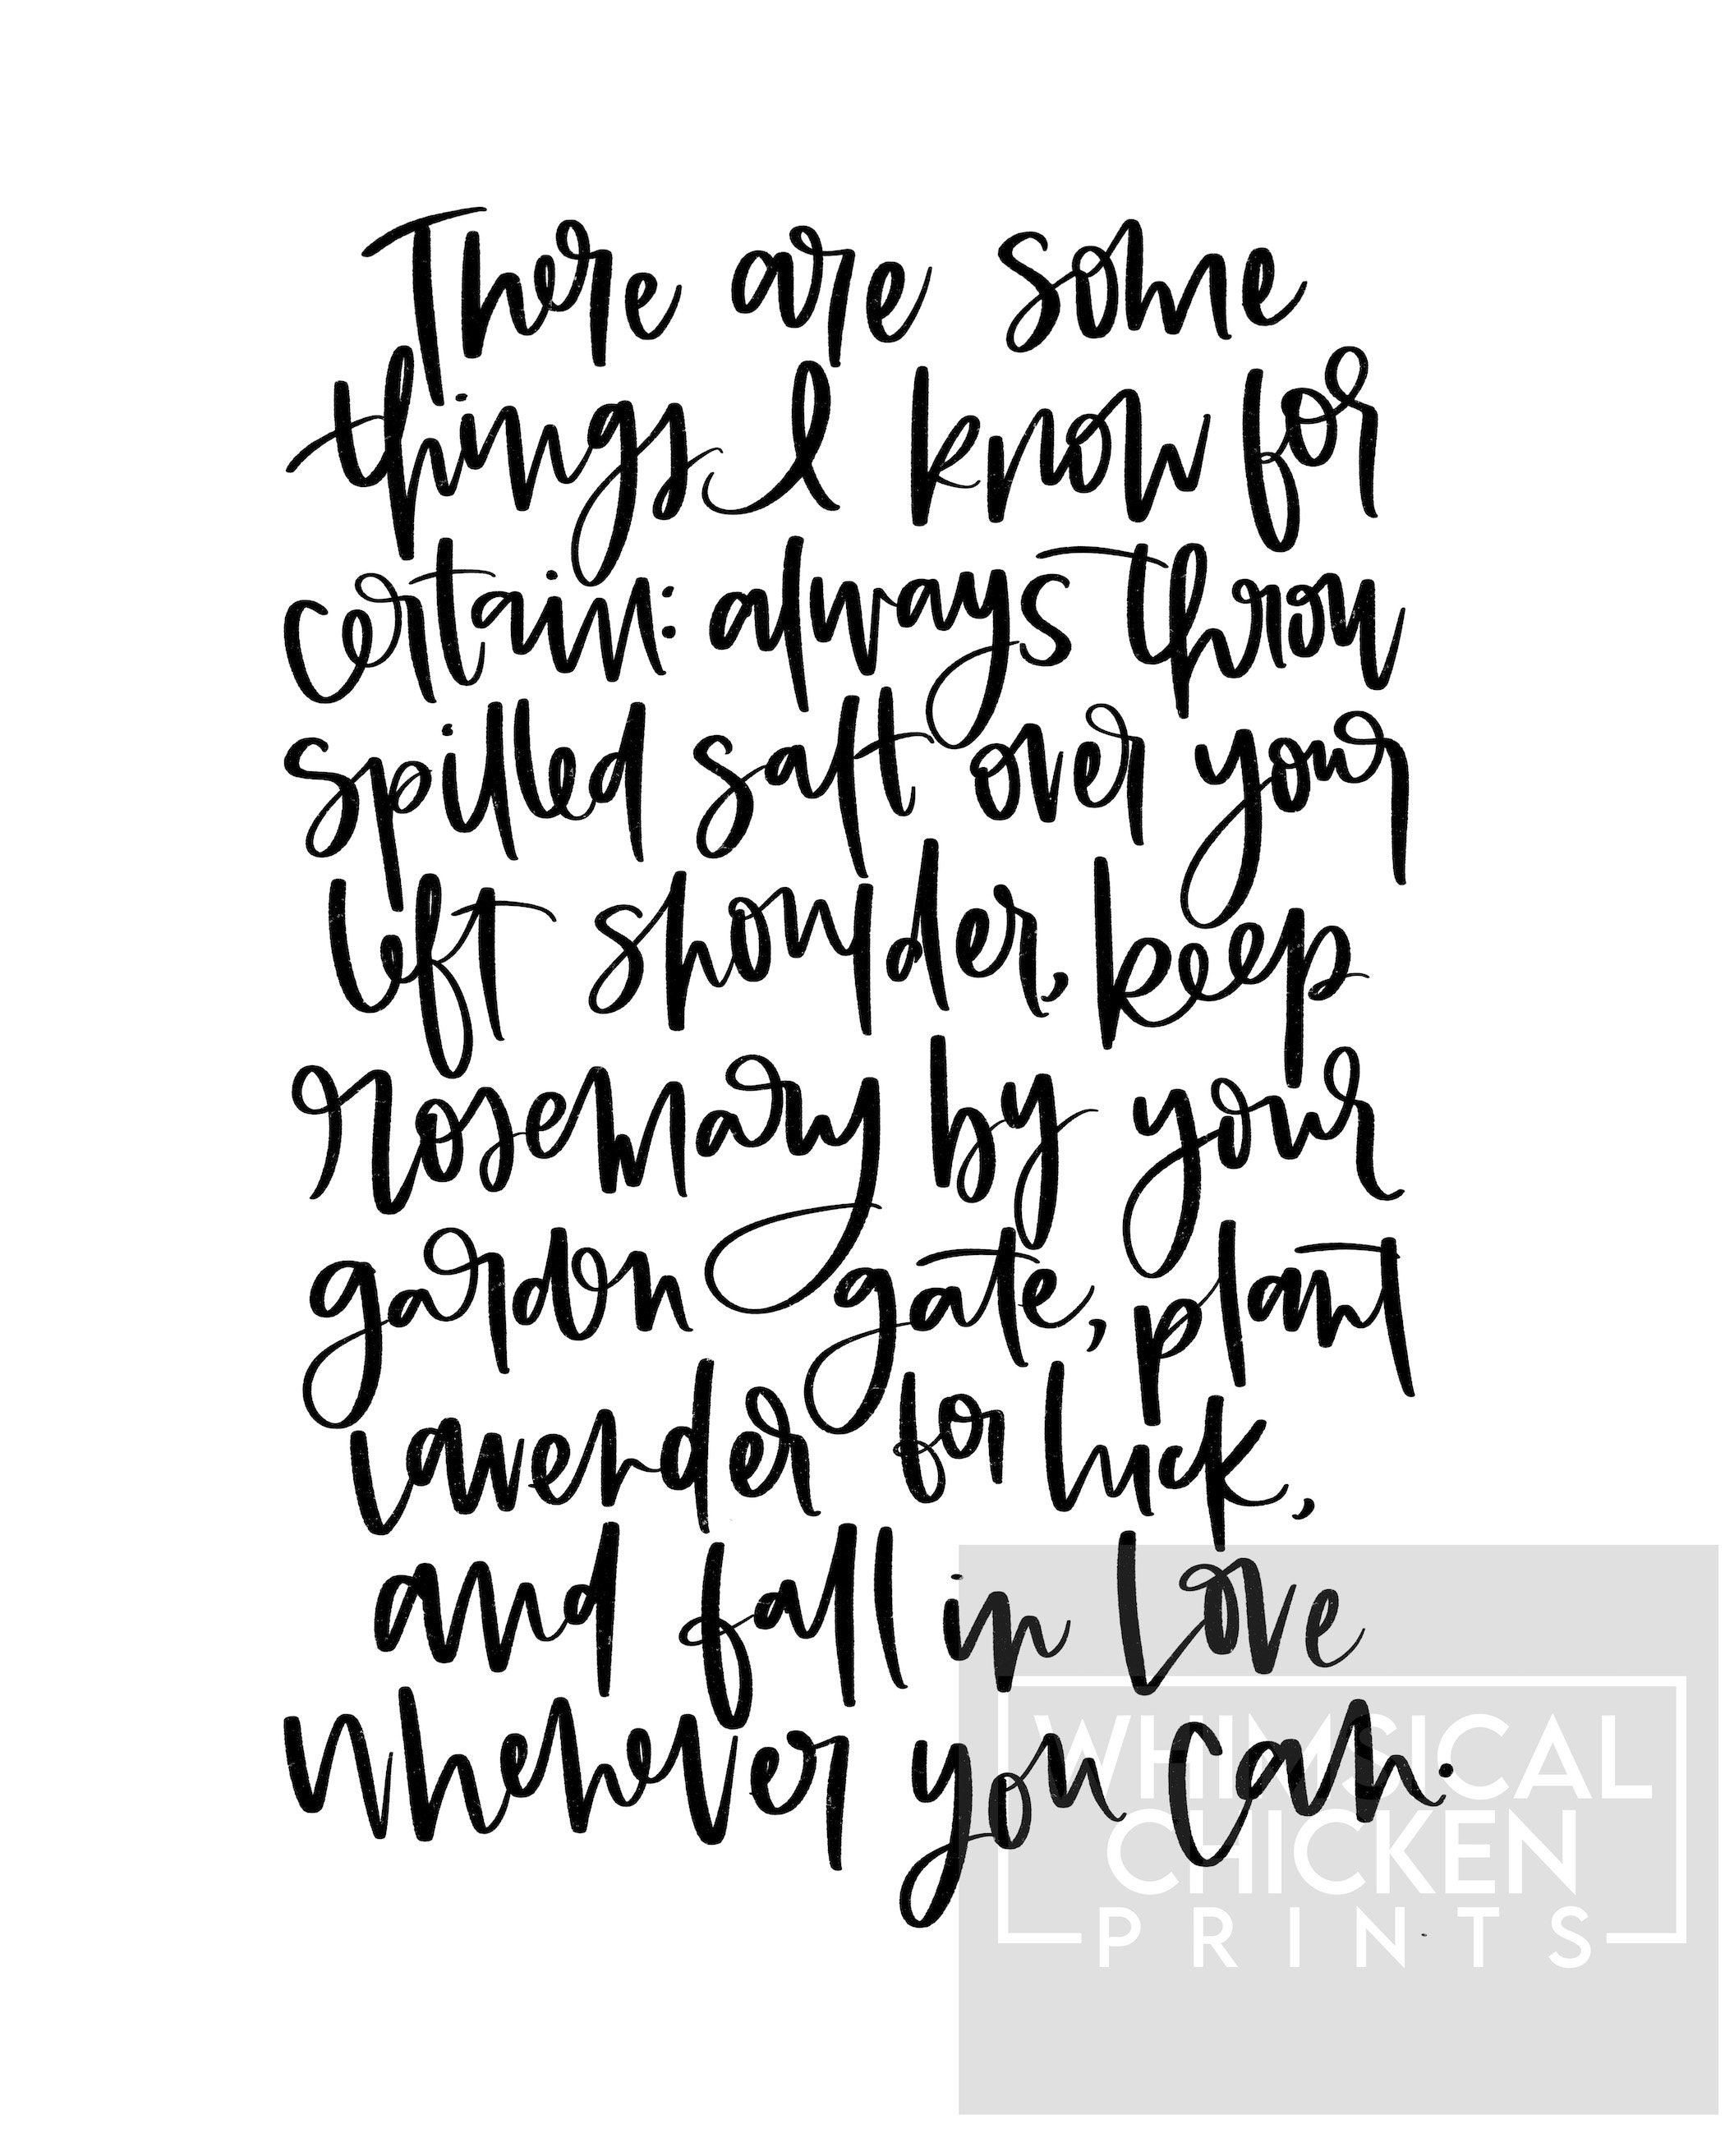 There are some
things I know for
certain: always throw
spilled salt over your
left shoulder, keep
rosemary by your
garden gate, plant
lavender for luck,
and fall in love
whenever you can.
WHIMSICAL
CHICKEN
PRINTS